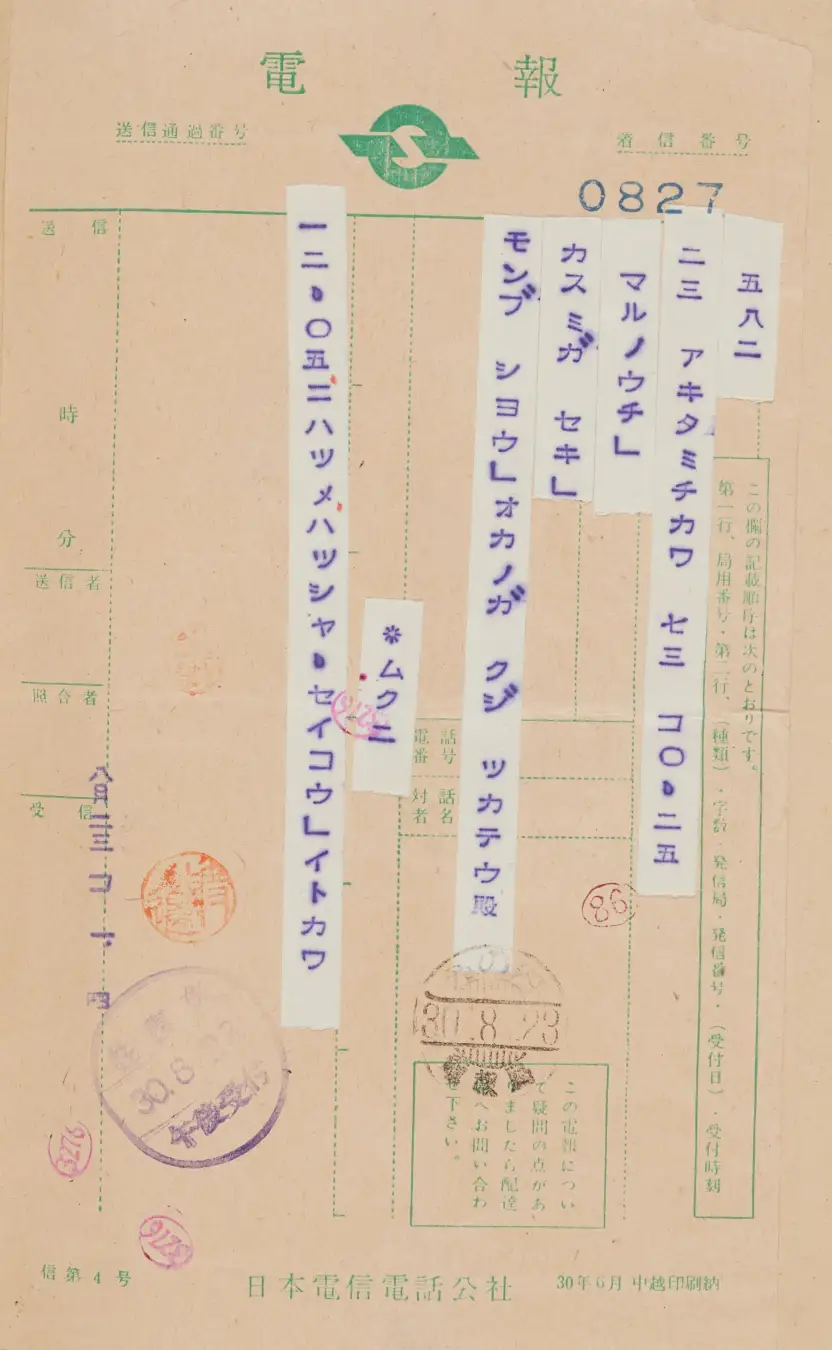 電報
送信通過番号
着信番号
0827
五八二
二三 アキタミチカワ 七三 コ〇、二五
マルノウチ」
カスミガ セキ」
モンブ シヨウ」オカノガ クジ ツカテウ殿
*ムクニ
一二、〇五ニハツメハツシヤ、セイコウ」イトカワ
この欄の記載順序は次のとおりです。
第一行、局用番号・第二行、(種類)・字数・発信局・発信番号・(受付日)・受付時刻
電話番号
対話者名
送信
時
分
送信者
照合者
受信
86
30.8.23
30.8
午後受付
3276
この電報につい
て疑問の点があ
ましたら配達
へお問い合わ
せ下さい。
信第4号
日本電信電話公社
30年6月 中越印刷納